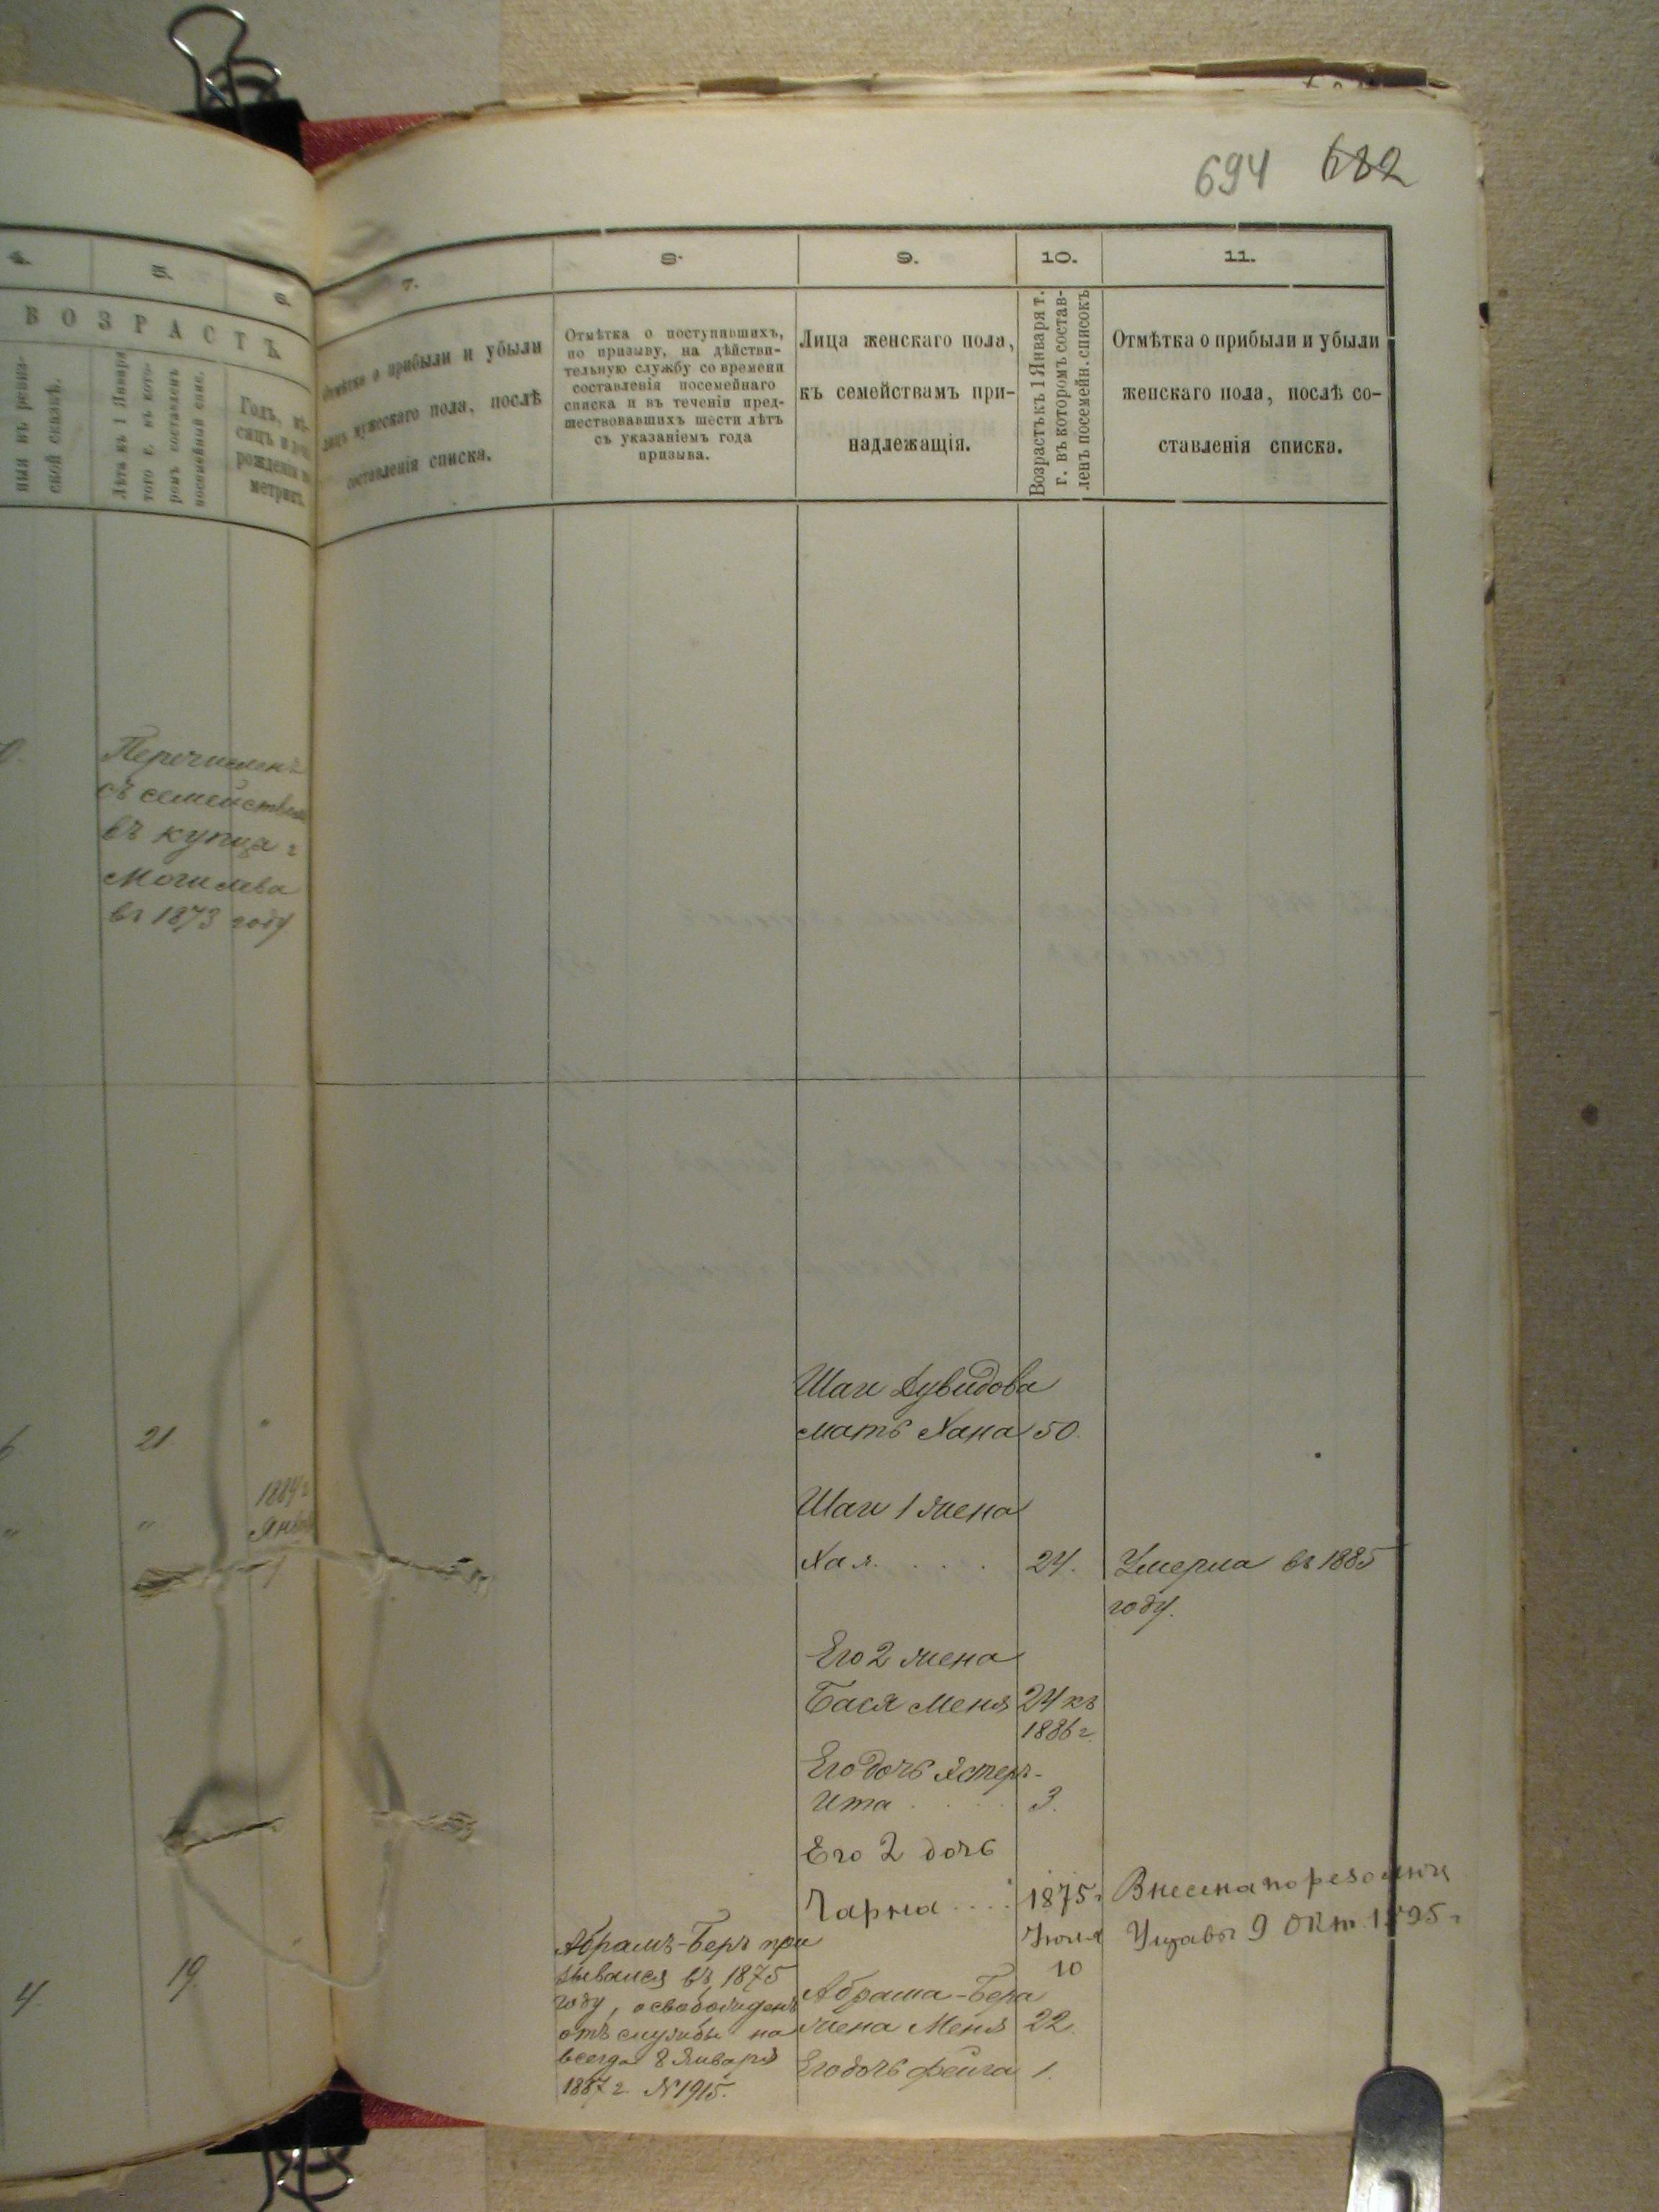 694 682
4. 5. 6. 7. 8. 9. 10. 11.
ВОЗРАСТЪ
ской сказкѣ.
Лѣта къ 1 Января
того г. въ кото-
ромъ составленъ
посемейный спис.
Годъ, мѣ-
сяцъ и
рожденія
метрич.
Отмѣтка о прибыли и убыли
лицъ мужескаго пола, послѣ
составленія списка.
Отмѣтка о поступившихъ,
по призыву, на дѣйстви-
тельную службу со времени
составленія посемейнаго
списка и въ теченіи пред-
шествовавшихъ шести лѣтъ
съ указаніемъ года
призыва.
Лица женскаго пола,
къ семействамъ при-
надлежащія.
Возрастъ къ 1 Января т.
г. въ которомъ состав-
ленъ посемейн. списокъ
Отмѣтка о прибыли и убыли
женскаго пола, послѣ со-
ставленія списка.
Перечисленъ
съ семействомъ
въ купцы г
Могилева
въ 1873 году
21
1884 г
4.
19.
Абрамъ-Беръ при
зывался въ 1875
году, освобожденъ
отъ службы на
всегда 8 Января
1887 г. №1915.
Шаи Дувидова
мать Хана 50.
Шаи 1 жена
Хая 24. Умерла въ 1885
году.
Его 2 жена
Бася Меня 24 къ
1886 г.
Его дочь Эстеръ-
Ита 3.
Его 2 дочь
Чарна 1875 г Внесена по резолюціи
Іюля Управы 9 Окт. 1895 г
10
Абрама-Бера
жена Меня 22.
Его дочь Фейга 1.